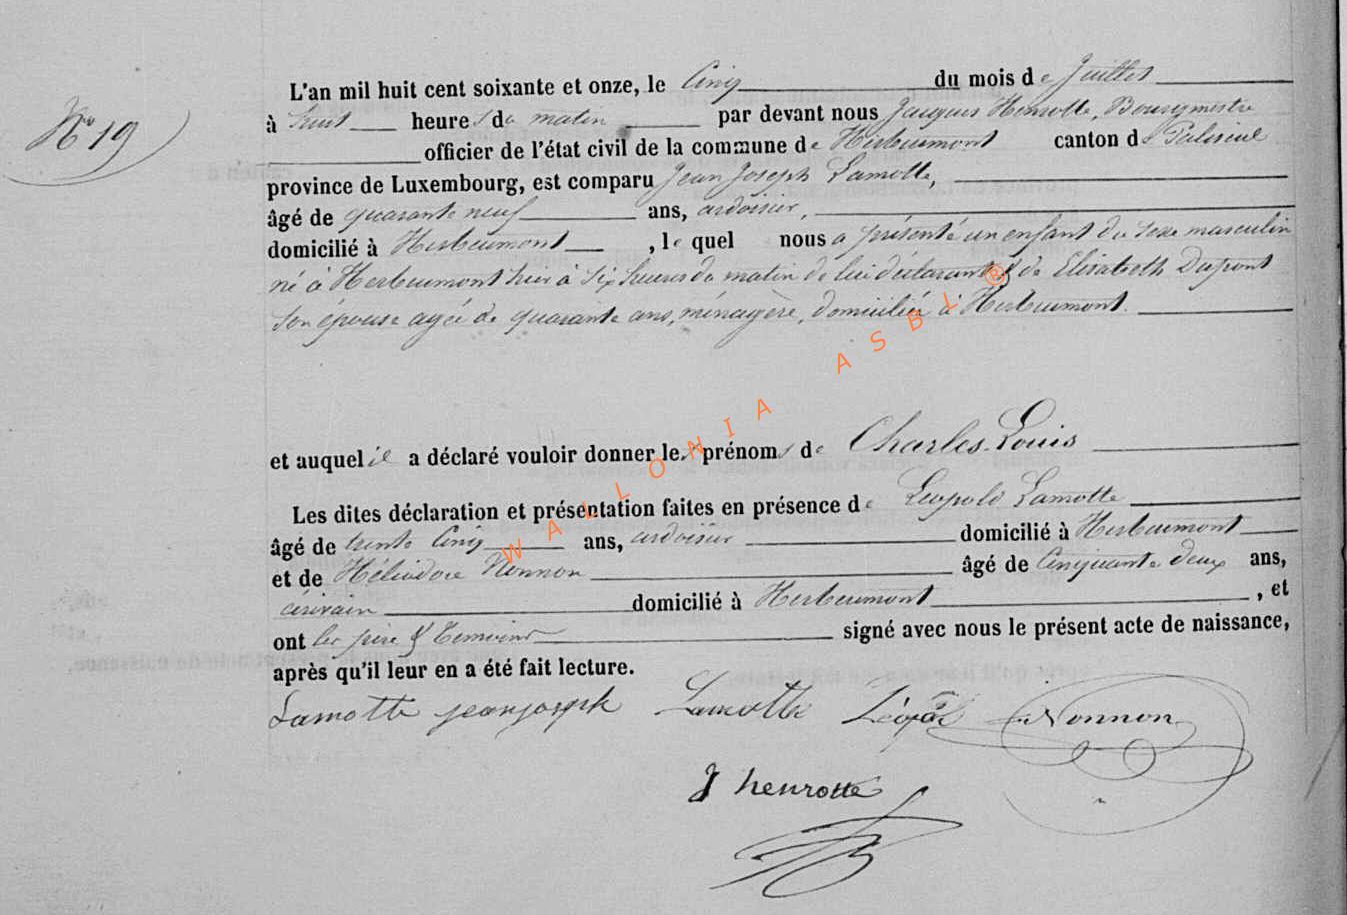 N° 19
L'an mil huit cent soixante et onze, le Cinq du mois de Juillet
à huit heures du matin par devant nous Jacques Henrotte, Bourgmestre
officier de l'état civil de la commune de Herbeumont canton de Paliseul
province de Luxembourg, est comparu Jean Joseph Lamotte,
âgé de quarante neuf ans, ardoisier,
domicilié à Herbeumont, le quel nous a présenté un enfant du sexe masculin
né à Herbeumont hier à six heures du matin de lui déclarant & de Elisabeth Dupont
son épouse agée de quarante ans, ménagère, domiciliée à Herbeumont.
et auquel il a déclaré vouloir donner les prénoms de Charles-Louis
Les dites déclaration et présentation faites en présence de Léopold Lamotte
âgé de trente cinq ans, ardoisier domicilié à Herbeumont
et de Héliodore Nonnon âgé de Cinquante deux ans,
écrivain domicilié à Herbeumont, et
ont les père & témoins signé avec nous le présent acte de naissance,
après qu'il leur en a été fait lecture.
Lamotte jeanjoseph Lamotte Léopold Nonnon
J henrotte
WALLONIA ASBL ®